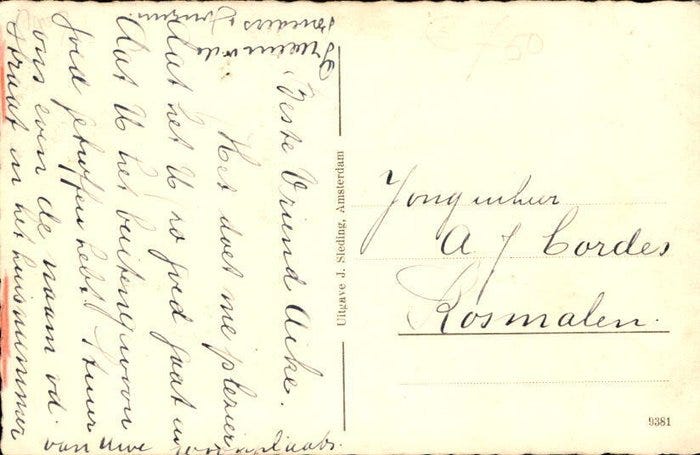 Beste Vriend Aike.
Het doet me plezier
dat het U zo goed gaat en
dat U het buitengewoon
goed getroffen hebt. Stuur
ons even de naam v.d.
straat en het huisnummer
van uwe woonplaats.
Vrienden
Uitgave J. Sleding, Amsterdam
Jongenheer
A J Cordes
Rosmalen.
9381